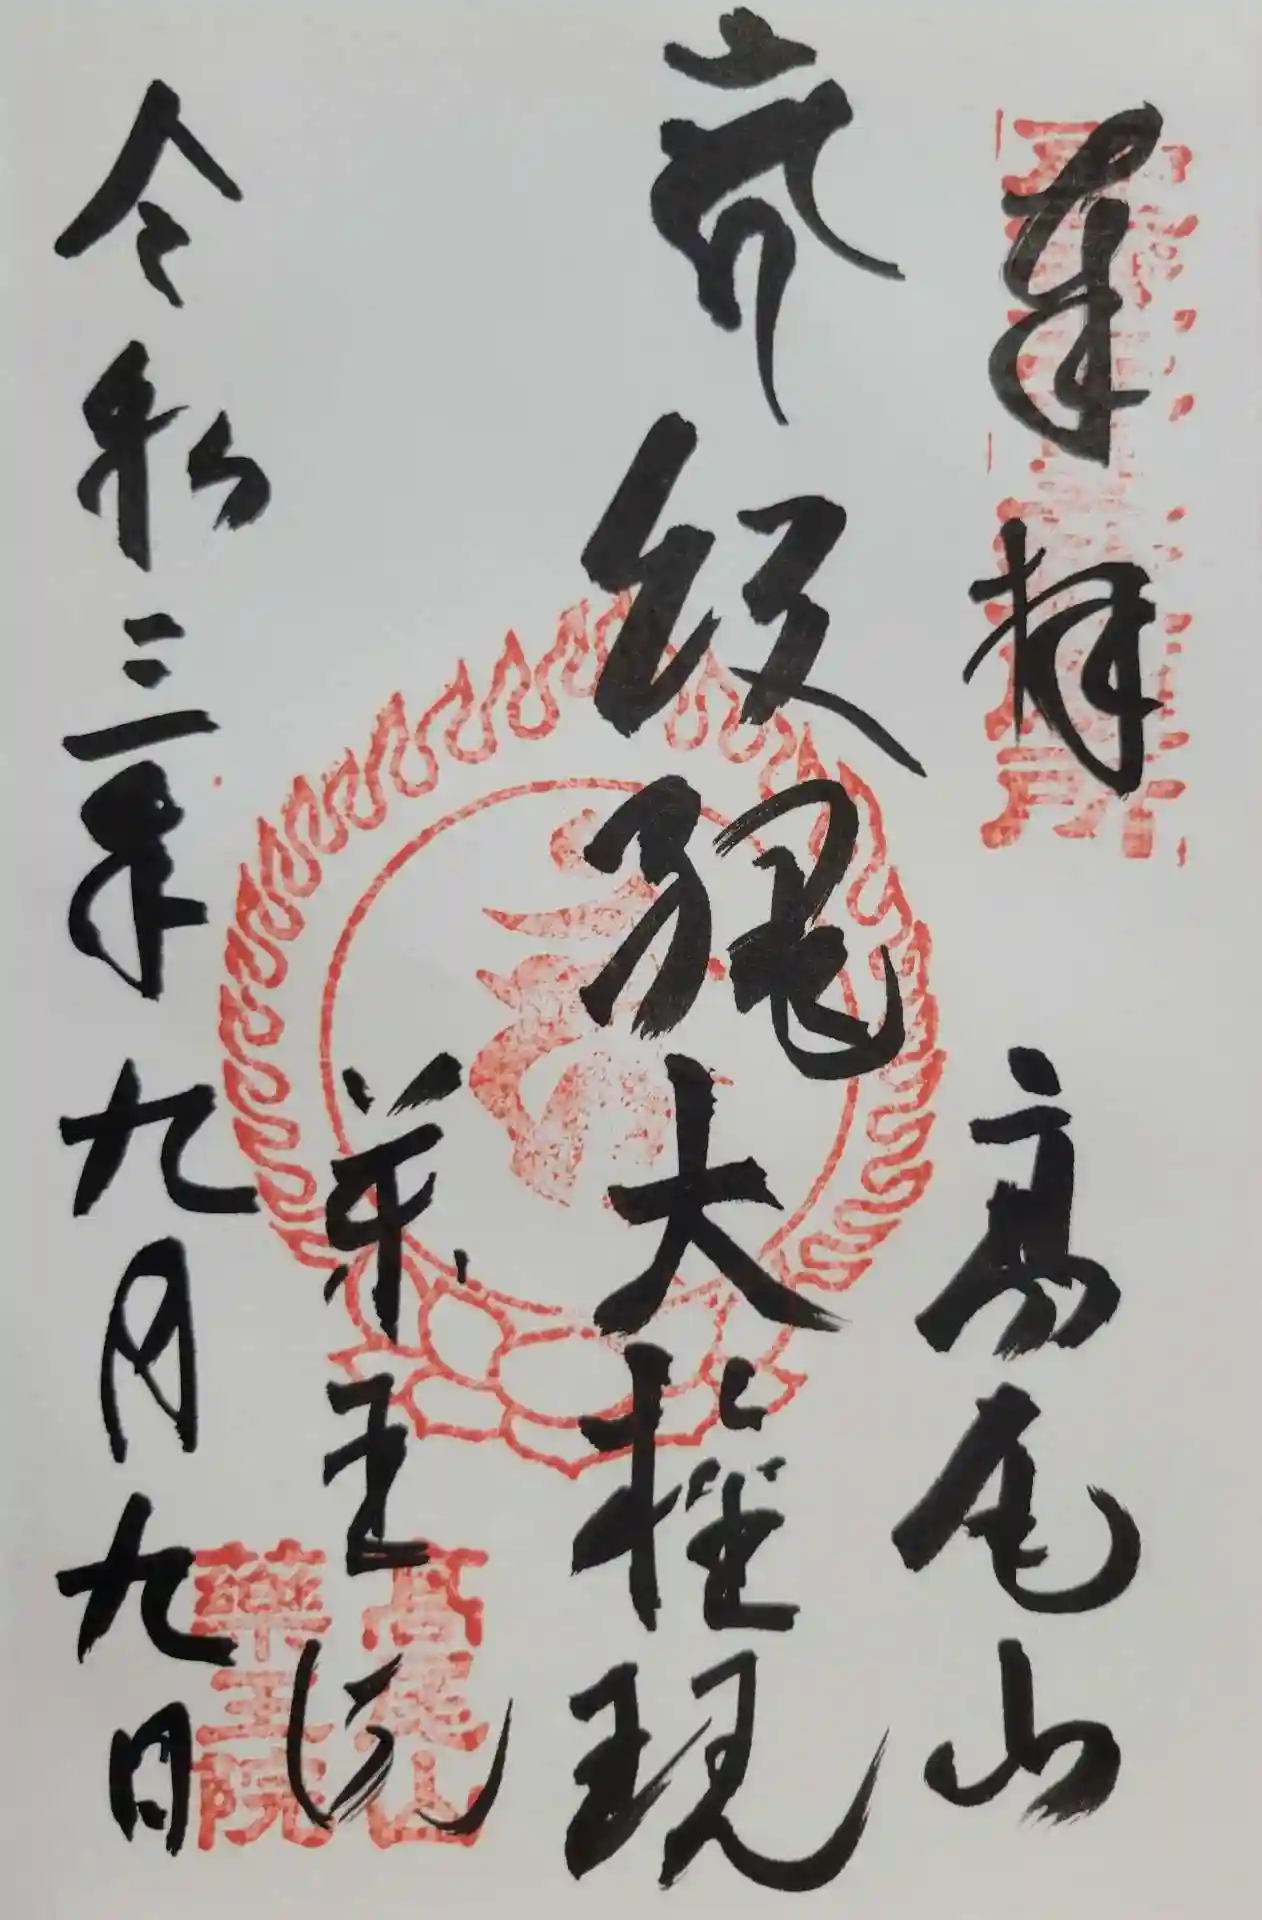 奉拝
高尾山
飯縄大権現
薬王院
令和三年九月九日
高尾山
薬王院